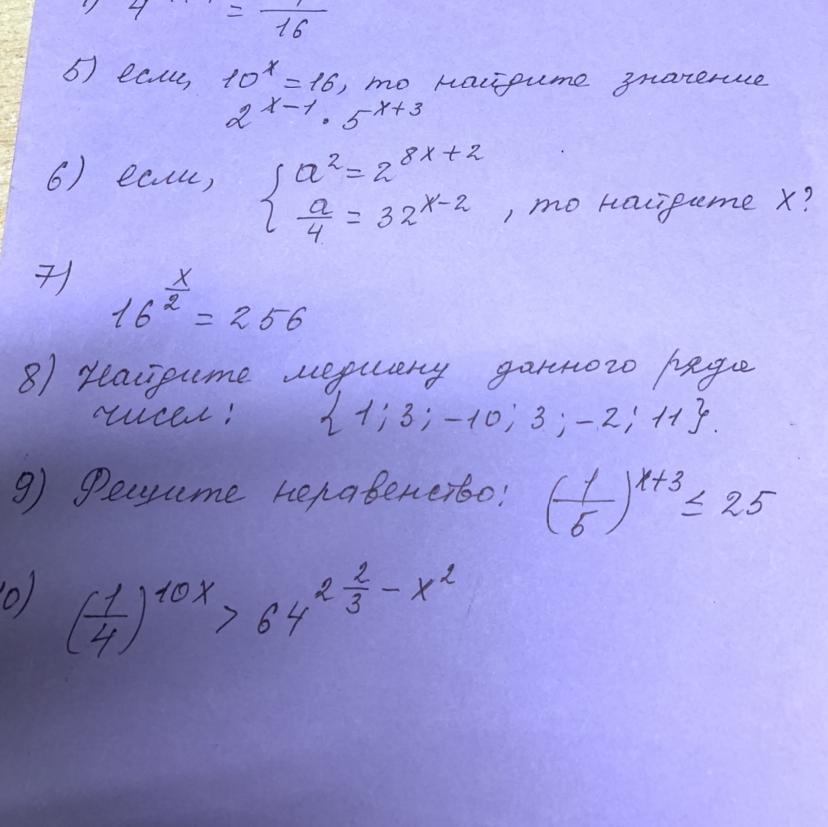 4 = 1/16
5) если, 10^x = 16, то найдите значение
2^(x-1) · 5^(x+3)
6) если, { a^2 = 2^(8x+2)
a/4 = 32^(x-2) , то найдите x?
7)
16^(x/2) = 256
8) Найдите медиану данного ряда
чисел: {1; 3; -10; 3; -2; 11}.
9) Решите неравенство: (1/5)^(x+3) ≤ 25
10) (1/4)^(10x) > 64^(2 2/3 - x^2)